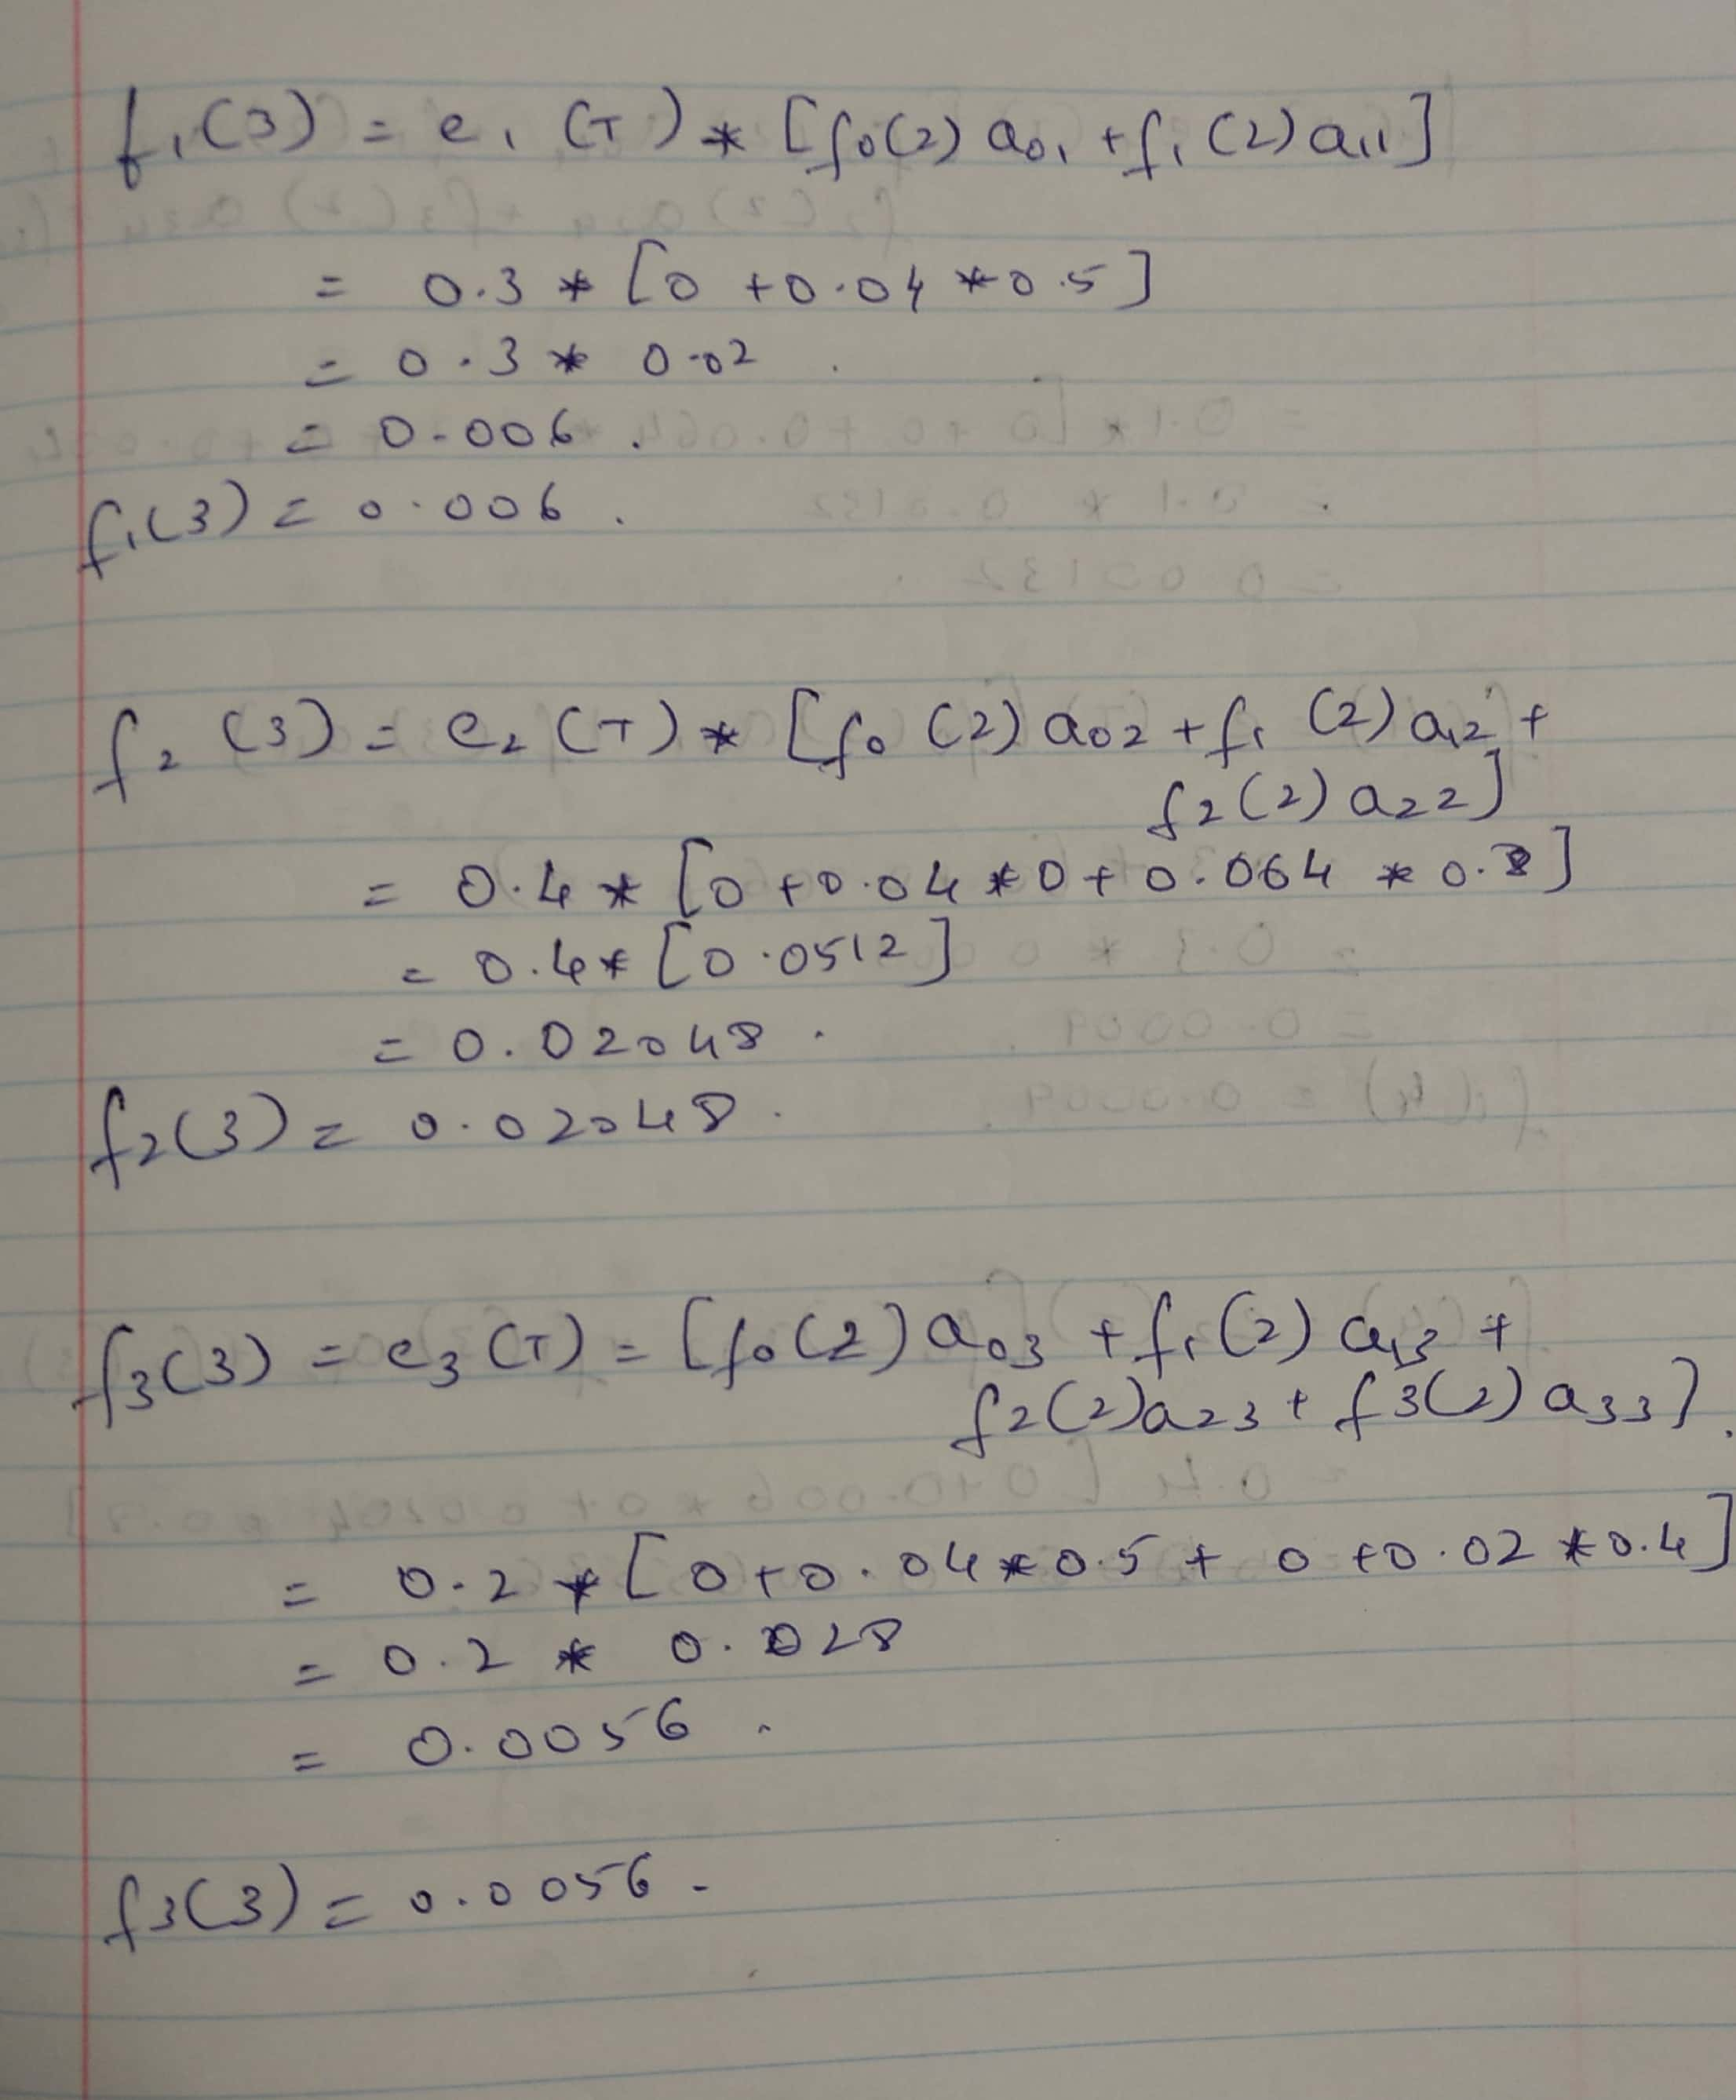 f₁(3) = e₁(T) * [f₀(2) a₀₁ + f₁(2) a₁₁]
= 0.3 * [0 + 0.04 * 0.5]
= 0.3 * 0.02
= 0.006.
f₁(3) = 0.006.
f₂(3) = e₂(T) * [f₀(2) a₀₂ + f₁(2) a₁₂ +
f₂(2) a₂₂]
= 0.4 * [0 + 0.04 * 0 + 0.064 * 0.8]
= 0.4 * [0.0512]
= 0.02048.
f₂(3) = 0.02048.
f₃(3) = e₃(T) = [f₀(2) a₀₃ + f₁(2) a₁₃ +
f₂(2) a₂₃ + f₃(2) a₃₃].
= 0.2 * [0 + 0.04 * 0.5 + 0 + 0.02 * 0.4]
= 0.2 * 0.028
= 0.0056.
f₃(3) = 0.0056.